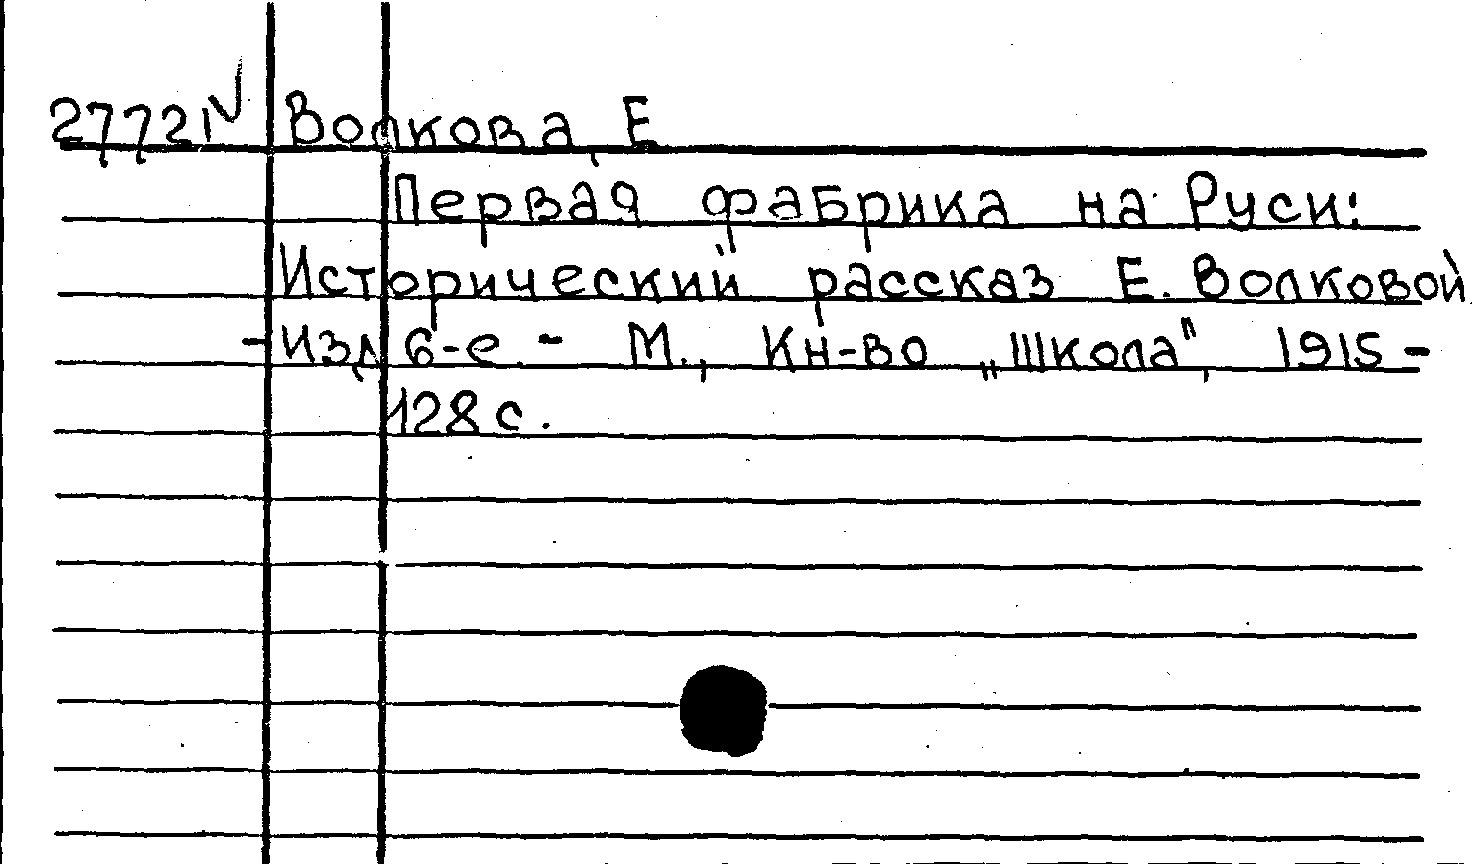 27721 Волкова, Е.
Первая фабрика на Руси:
Исторический рассказ Е. Волковой
-изд. 6-е. - М., Кн-во „Школа", 1915 -
128 с.